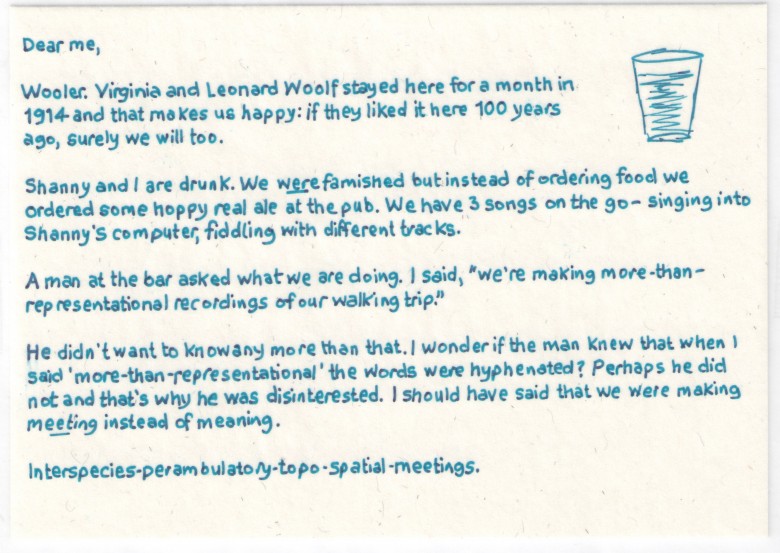 Dear me,
Wooler. Virginia and Leonard Woolf stayed here for a month in
1914 and that makes us happy: if they liked it here 100 years
ago, surely we will too.
Shanny and I are drunk. We were famished but instead of ordering food we
ordered some hoppy real ale at the pub. We have 3 songs on the go - singing into
Shanny's computer, fiddling with different tracks.
A man at the bar asked what we are doing. I said, "we're making more-than-
representational recordings of our walking trip."
He didn't want to know any more than that. I wonder if the man knew that when I
said 'more-than-representational' the words were hyphenated? Perhaps he did
not and that's why he was disinterested. I should have said that we were making
meeting instead of meaning.
Interspecies-perambulatory-topo-spatial-meetings.